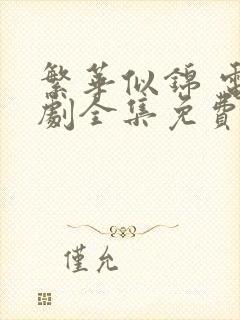 繁華似錦 電
劇全集免費
僅允